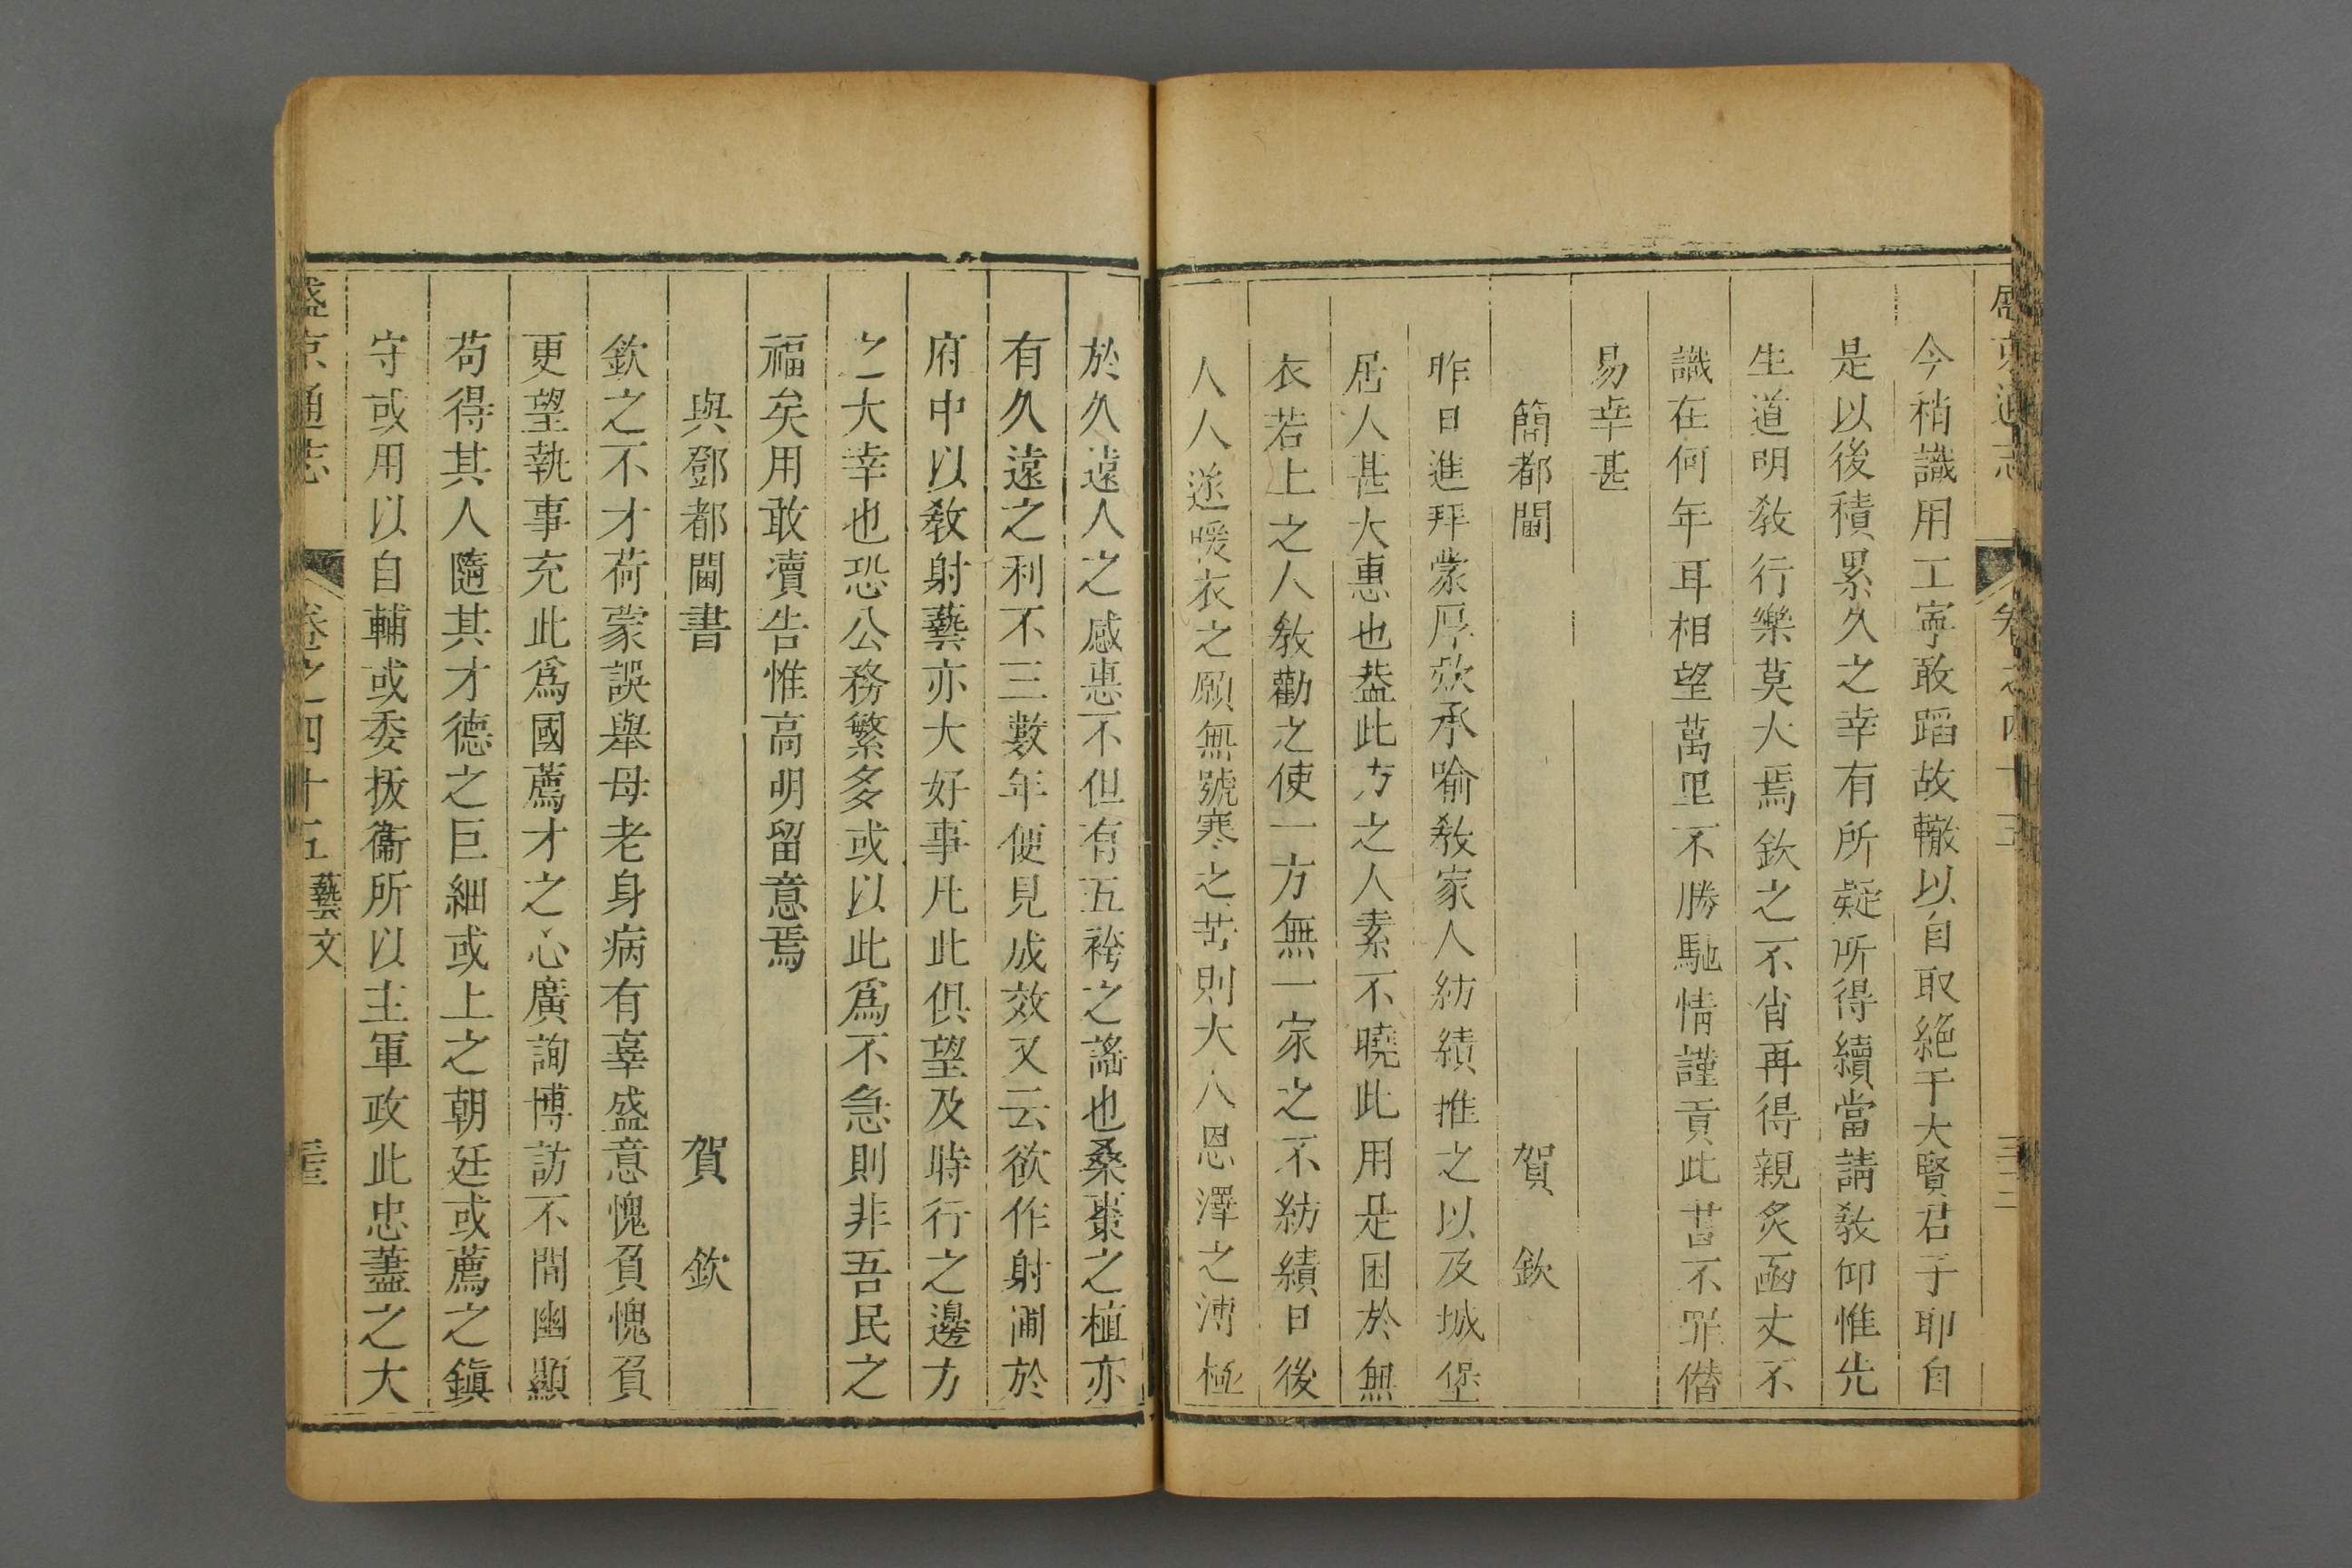 盛京通志 卷之四十五 三十二
今稍識用工寧敢蹈故轍以自取絶于大賢君子耶自
是以後積累久之幸有所疑所得續當請敎仰惟先
生道明敎行樂莫大焉欽之不肖再得親炙函丈不
識在何年耳相望萬里不勝馳情謹貢此書不罪僭
易幸甚
簡都閫 賀欽
昨日進拜蒙厚欵承喻敎家人紡績推之以及城堡
居人甚大惠也葢此方之人素不曉此用是困於無
衣若上之人敎勸之使一方無一家之不紡績日後
人人遂暖衣之願無號寒之苦則大人恩澤之溥極
於久遠人之感惠不但有五袴之謠也桑棗之植亦
有久遠之利不三數年便見成效又云欲作射圃於
府中以敎射藝亦大好事凡此俱望及時行之邊方
之大幸也恐公務繁多或以此爲不急則非吾民之
福矣用敢瀆告惟高明留意焉
與鄧都閫書 賀欽
欽之不才荷蒙誤舉母老身病有辜盛意愧負愧負
更望執事充此爲國薦才之心廣詢博訪不間幽顯
苟得其人隨其才德之巨細或上之朝廷或薦之鎭
守或用以自輔或委扳衞所以主軍政此忠藎之大
盛京通志 卷之四十五 藝文